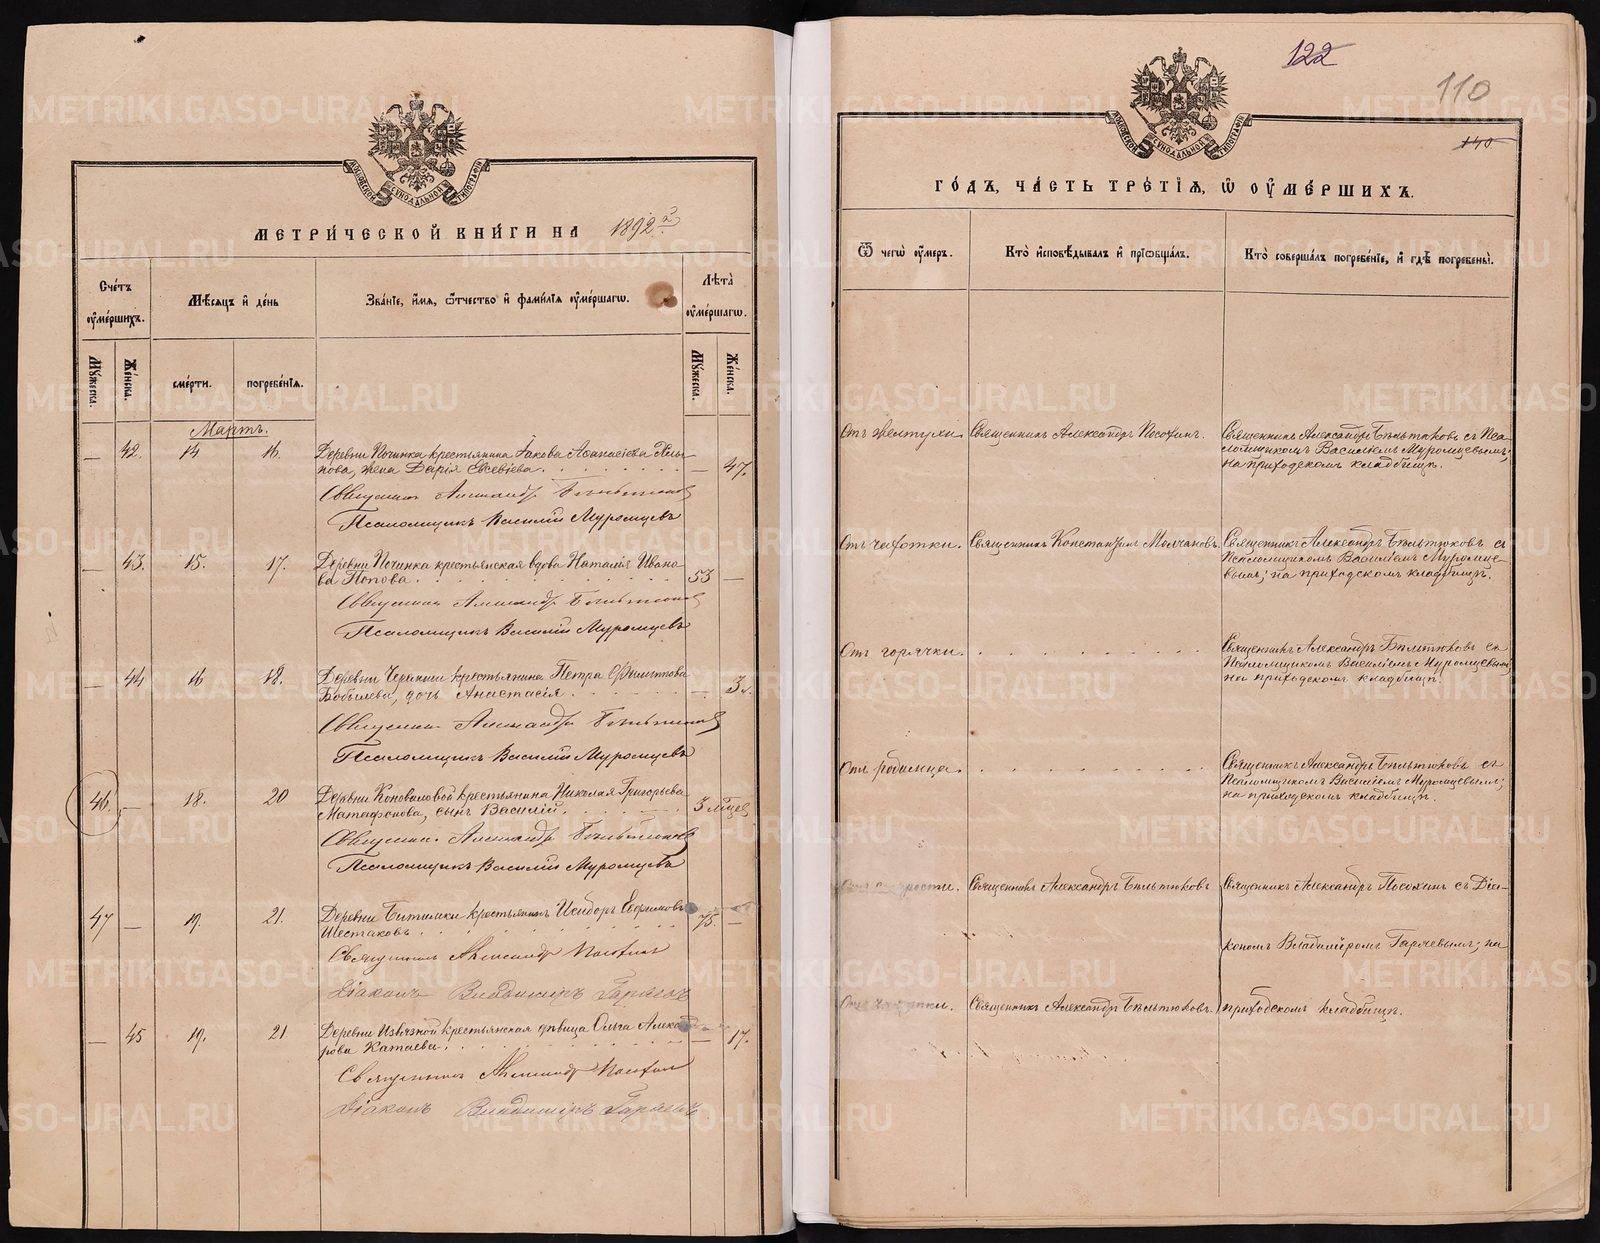 МЕТРИ́ЧЕСКОЙ КНИ́ГИ НА 1892 г.
Сче́тъ ᲂу҆ме́ршихъ.
Мѣ́сяцъ и҆ де́нь
Зва́нїе, и҆́мѧ, ѻ҆́тчество и҆ фами́лїѧ ᲂу҆ме́ршагѡ.
Лѣ́та ᲂу҆ме́ршагѡ.
Мꙋ́жеска.
Же́нска.
сме́рти.
погребе́нїѧ.
Мꙋ́жеска.
Же́нска.
Мартъ.
— 42. 14 16. Деревни Починка крестьянина Іакова Аѳанасіева
нова, жена Дарія Евсевіева. — 47.
Священникъ Александръ Бѣльтюковъ
Псаломщикъ Василій Муромцевъ
— 43. 15. 17. Деревни Починка крестьянская вдова Наталія Ивано-
ва Попова. 53 —
Священникъ Александръ Бѣльтюковъ
Псаломщикъ Василій Муромцевъ
— 44 16 18. Деревни крестьянина Петра Филиппова
Бобылева, дочь Анастасія. — 3 л.
Священникъ Александръ Бѣльтюковъ
Псаломщикъ Василій Муромцевъ
46. — 18. 20 Деревни Коноваловой крестьянина Николая Григорьева
сынъ Василій. 3 мѣсяц.
Священникъ Александръ Бѣльтюковъ
Псаломщикъ Василій Муромцевъ
47 — 19. 21. Деревни крестьянинъ Исидоръ Ефимовъ
Шестаковъ. 75. —
Священникъ Александръ Посохинъ
Діаконъ Владиміръ Гаряевъ
— 45 19. 21 Деревни Извозной крестьянская дѣвица Ольга
рова Катаева. — 17.
Священникъ Александръ Посохинъ
Діаконъ Владиміръ Гаряевъ
122
110
140
ГО́ДЪ, ЧА́СТЬ ТРЕ́ТЇѦ, Ѡ҆ ОУ҆МЕ́РШИХЪ.
Ѿ чегѡ̀ ᲂу҆́меръ.
Кто̀ и҆сповѣ́дывалъ и҆ прїѡбща́лъ.
Кто̀ соверша́лъ погребе́нїе, и҆ гдѣ̀ погребены̀.
Отъ желтухи. Священникъ Александръ Посохинъ. Священникъ Александръ Бѣльтюковъ съ Пса-
ломщикомъ Василіемъ Муромцевымъ;
на приходскомъ кладбищѣ.
Отъ чахотки. Священникъ Константинъ Молчановъ. Священникъ Александръ Бѣльтюковъ съ
Псаломщикомъ Василіемъ Муромце-
вымъ; на приходскомъ кладбищѣ.
Отъ горячки. Священникъ Александръ Бѣльтюковъ съ
Псаломщикомъ Василіемъ Муромцевымъ;
на приходскомъ кладбищѣ.
Отъ родимца. Священникъ Александръ Бѣльтюковъ съ
Псаломщикомъ Василіемъ Муромцевымъ;
на приходскомъ кладбищѣ.
Отъ старости. Священникъ Александръ Бѣльтюковъ Священникъ Александръ Посохинъ съ Діа-
кономъ Владиміромъ Гаряевымъ; на
Отъ чахотки. Священникъ Александръ Бѣльтюковъ. приходскомъ кладбищѣ.